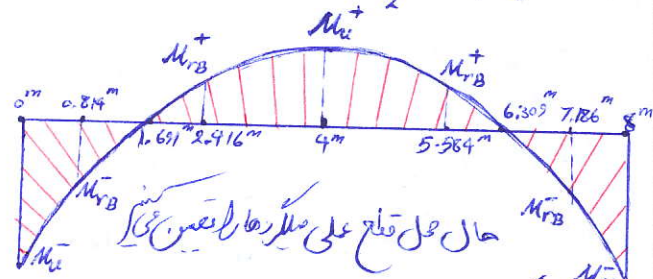 M_u^+
M_rB^+ M_rB^+
0^m 0.814^m 1.691^m 2.416^m 4^m 5.584^m 6.309^m 7.186^m 8^m
M_rB^- M_rB^-
حال محل قطع عملی میلگردها را تعیین می کنیم
M_u^- M_u^-